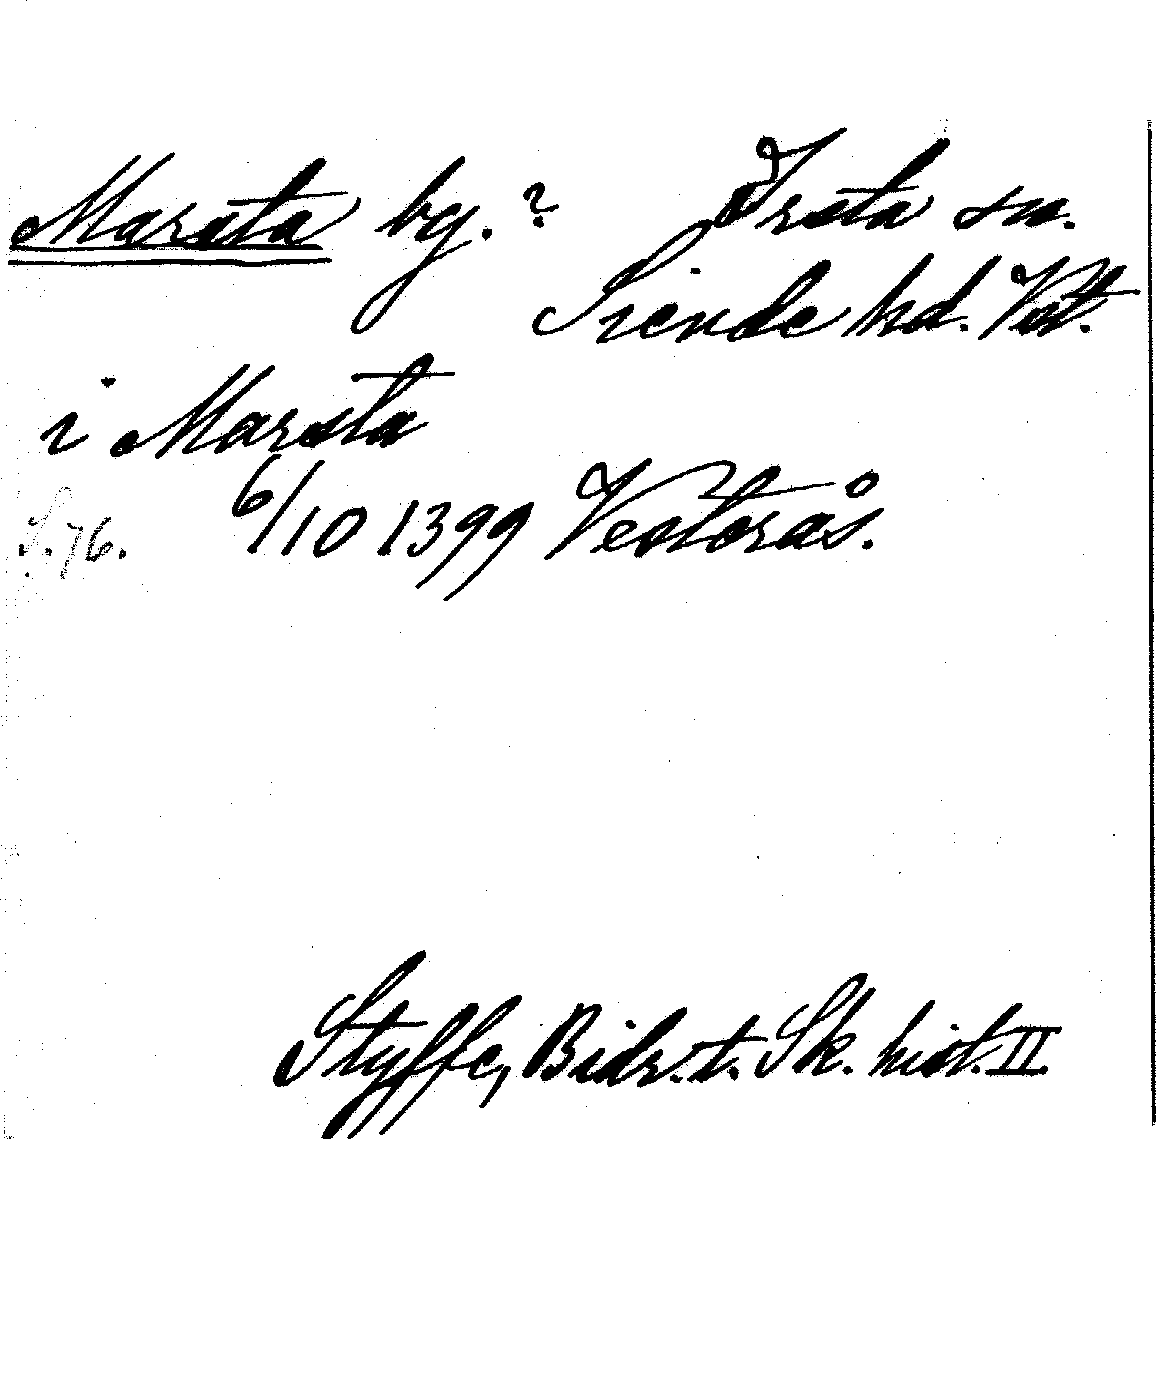 Marsta by.? Irsta sn.
Siende hd. Vst.
i Marsta
S. 76. 6/10 1399 Vesterås.
Styffe, Bidr. t. Sk. hist. II.